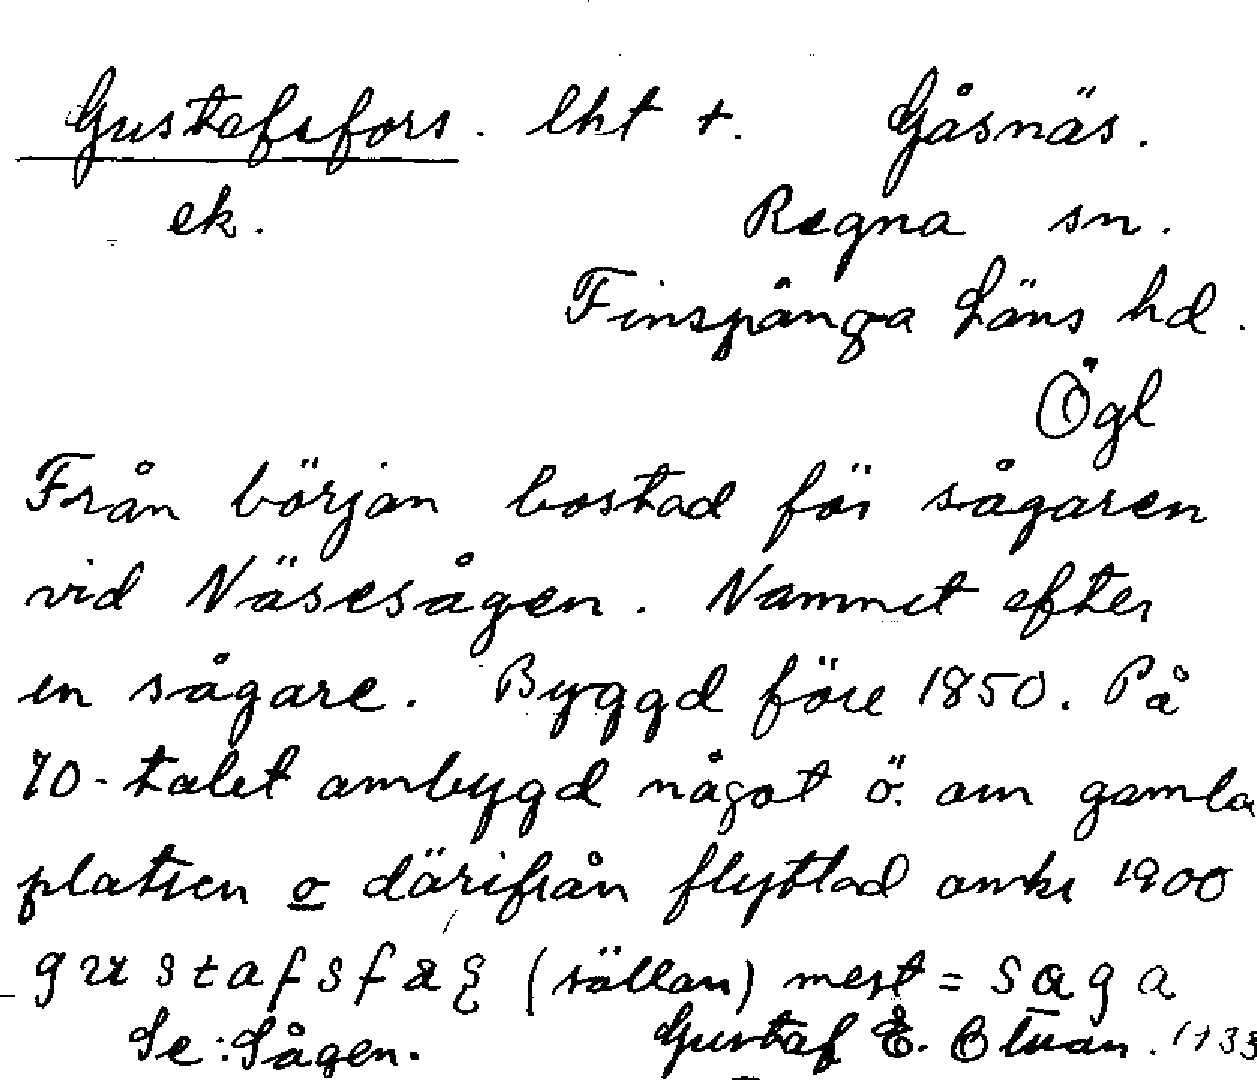 Gustafsfors. lht +. Gåsnäs.
ek. Regna sn.
Finspånga läns hd.
Ögl
Från början bostad för sågaren
vid Näsesågen. Namnet efter
en sågare. Byggd före 1850. På
70-talet ombygd något ö. om gamla
platsen o därifrån flyttad omkr 1900
(sällan) mest =
Se: Sågen. Gustaf E.